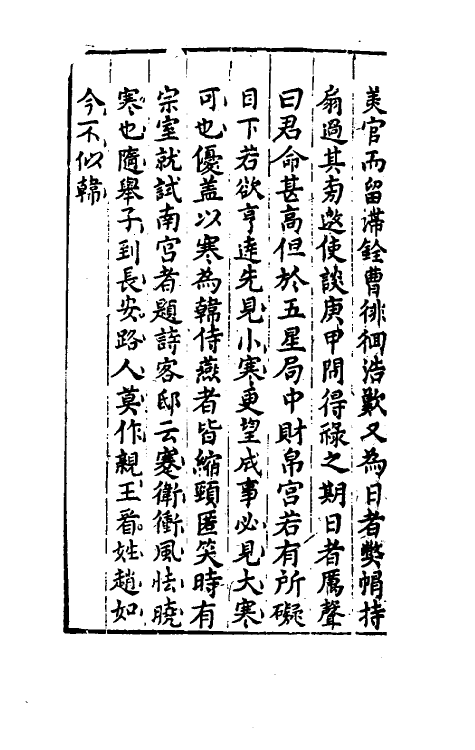 美官而留滯銓曹徘徊浩歎又為日者弊帽持
扇過其旁邀使談庚甲問得祿之期日者厲聲
曰君命甚高但於五星局中財帛宮若有所礙
目下若欲亨達先見小寒更望成事必見大寒
可也優蓋以寒為韓侍燕者皆縮頸匿笑時有
宗室就試南宮者題詩客邸云蹇衛衝風怯曉
寒也隨舉子到長安路人莫作親王看姓趙如
今不似韓